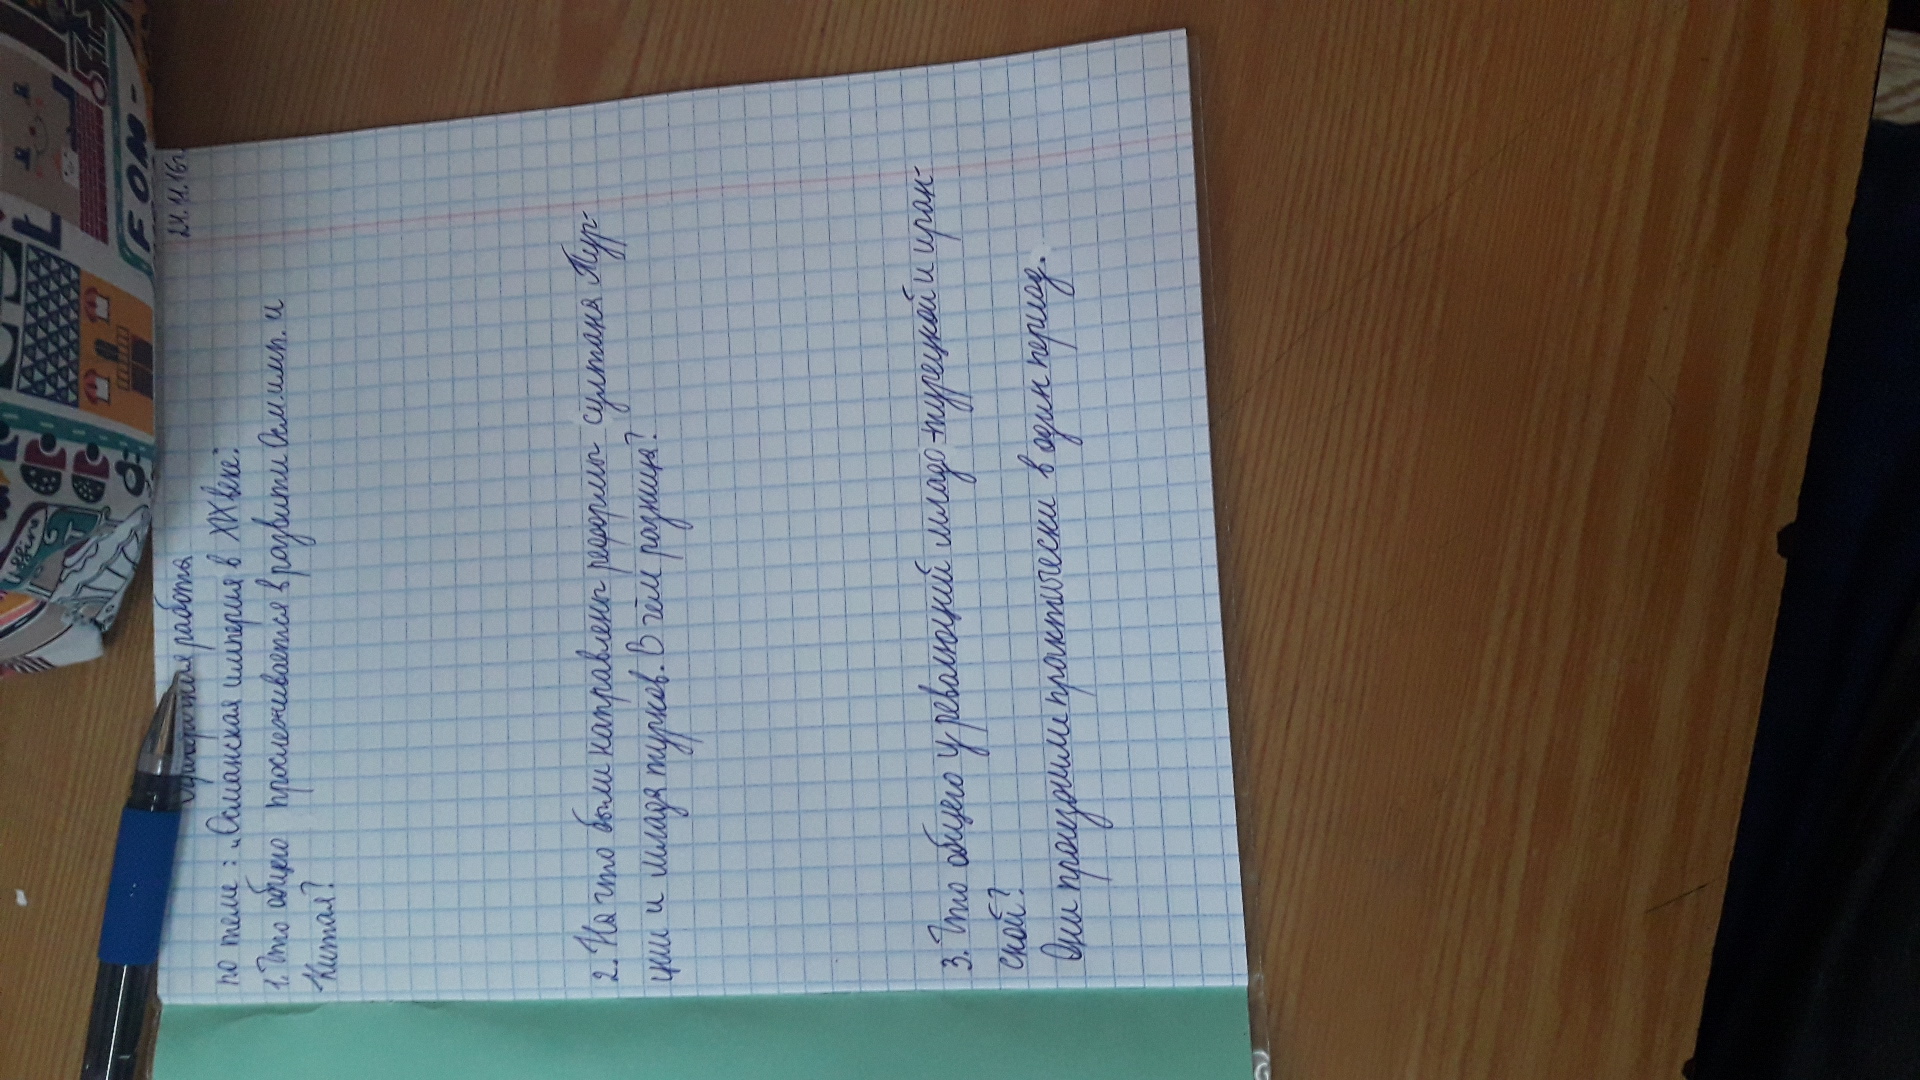 24.11.16г.
работа
по теме: „Османская империя в XX веке."
1. Что общего прослеживается в развити Осм. имп. и
Китая?
2. На что были направлены реформы султана Тур-
ции и млада турков. В чём разница?
3. Что общего у революций младо-турецкой и иран-
ской?
Они произошли практически в один период.
FOM-